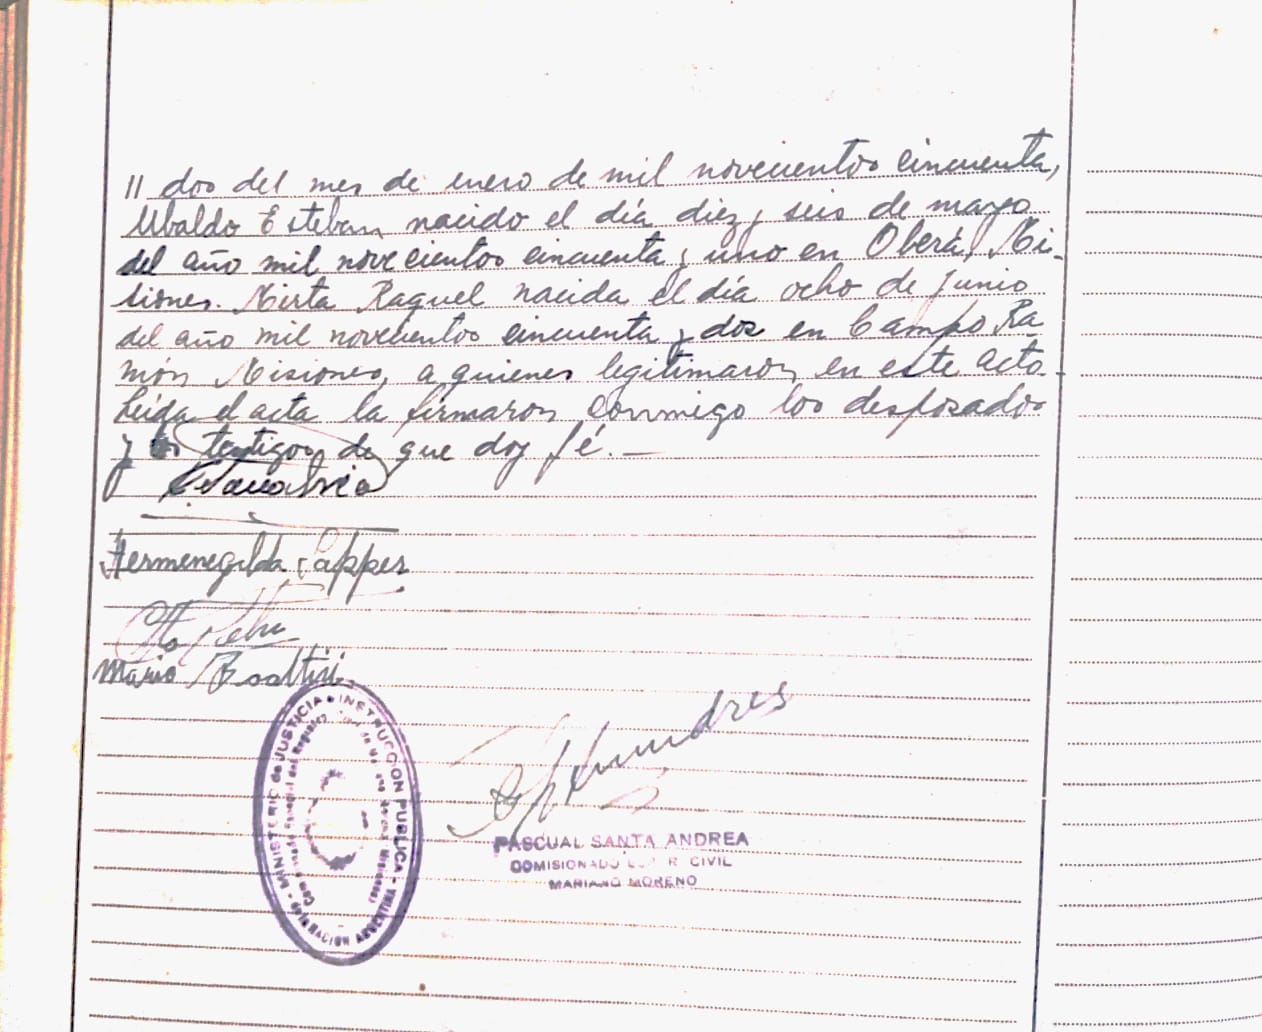 // dos del mes de enero de mil novecientos cincuenta,
Ubaldo Esteban nacido el día diez y seis de mayo
del año mil novecientos cincuenta y uno en Oberá, Mi-
siones. Mirta Raquel nacida el día ocho de junio
del año mil novecientos cincuenta y dos en Campo Ra
món Misiones, a quienes legitimaron en este acto.-
Leida el acta la firmaron conmigo los desposados
y los testigos de que doy fé.-
Hermenegilda
Otto
Mario
MINISTERIO de JUSTICIA • INSTRUCCION PUBLICA -
NACION ARGENTINA
PASCUAL SANTA ANDREA
COMISIONADO R. CIVIL
MARIANO MORENO